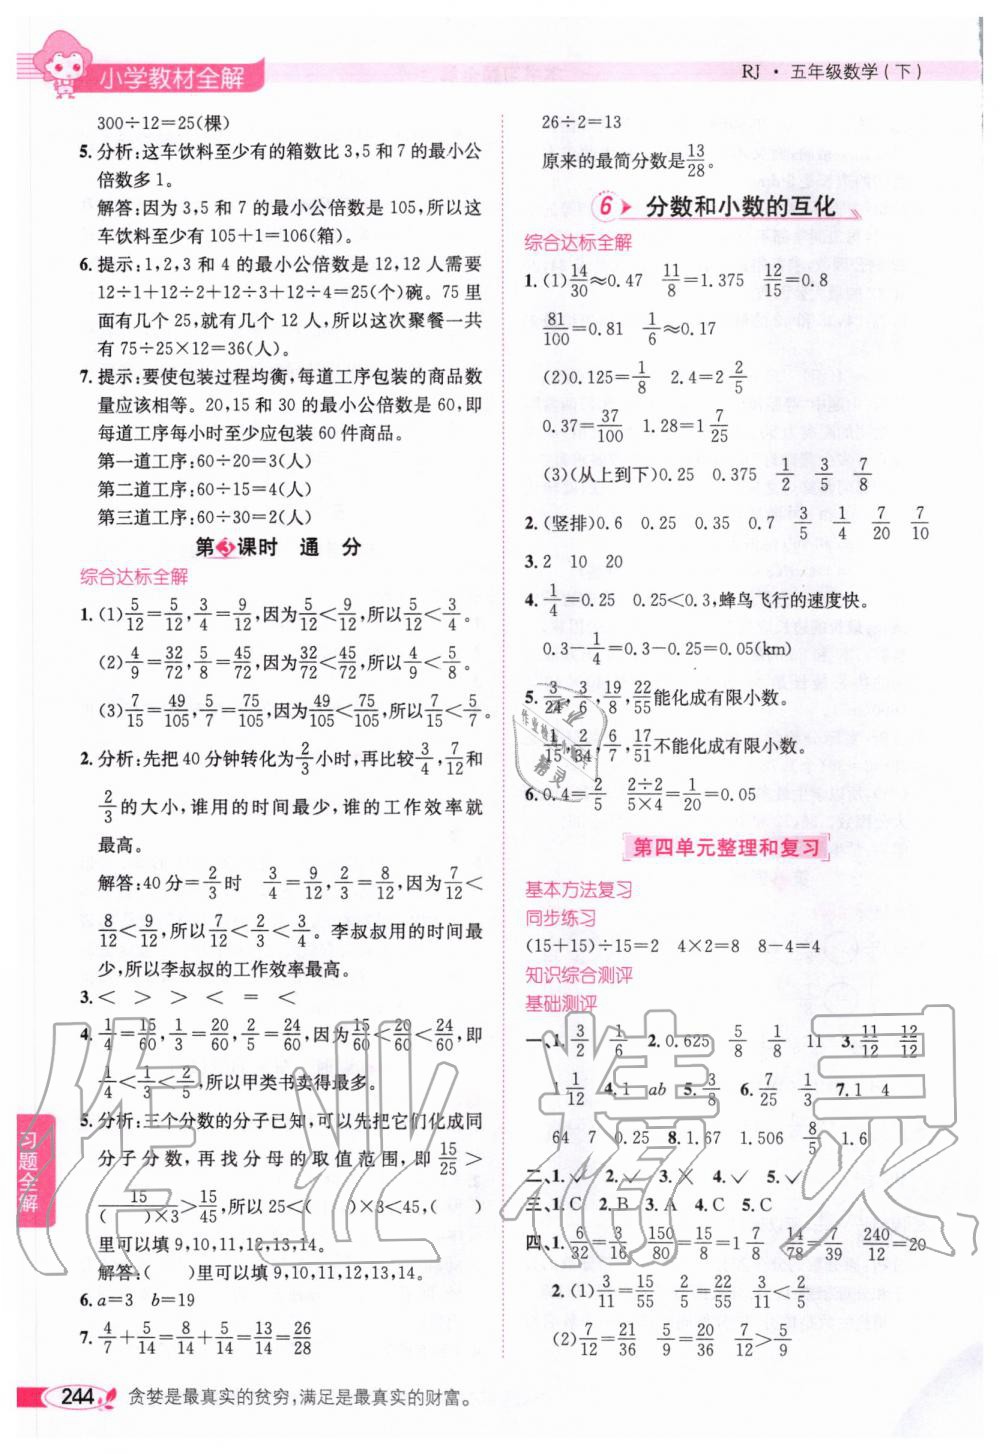 小学教材全解
RJ · 五年级数学(下)
300÷12=25(棵)
5. 分析:这车饮料至少有的箱数比3,5和7的最小公
倍数多1。
解答:因为3,5和7的最小公倍数是105,所以这
车饮料至少有105+1=106(箱)。
6. 提示:1,2,3和4的最小公倍数是12,12人需要
12÷1+12÷2+12÷3+12÷4=25(个)碗。75里
面有几个25,就有几个12人,所以这次聚餐一共
有75÷25×12=36(人)。
7. 提示:要使包装过程均衡,每道工序包装的商品数
量应该相等。20,15和30的最小公倍数是60,即
每道工序每小时至少应包装60件商品。
第一道工序:60÷20=3(人)
第二道工序:60÷15=4(人)
第三道工序:60÷30=2(人)
第3课时 通 分
综合达标全解
1. (1)5/12=5/12,3/4=9/12,因为5/12<9/12,所以5/12<3/4。
(2)4/9=32/72,5/8=45/72,因为32/72<45/72,所以4/9<5/8。
(3)7/15=49/105,5/7=75/105,因为49/105<75/105,所以7/15<5/7。
2. 分析:先把40分钟转化为2/3小时,再比较3/4,7/12和
2/3的大小,谁用的时间最少,谁的工作效率就
最高。
解答:40分=2/3时 3/4=9/12,2/3=8/12,因为7/12<
8/12<9/12,所以7/12<2/3<3/4。李叔叔用的时间最
少,所以李叔叔的工作效率最高。
3. < > > < = <
4. 1/4=15/60,1/3=20/60,2/5=24/60,因为15/60<20/60<24/60,即
1/4<1/3<2/5,所以甲类书卖得最多。
5. 分析:三个分数的分子已知,可以先把它们化成同
分子分数,再找分母的取值范围,即15/25>
15/(( )×3)>15/45,所以25<( )×3<45,( )
里可以填9,10,11,12,13,14。
解答:( )里可以填9,10,11,12,13,14。
6. a=3 b=19
7. 4/7+5/14=8/14+5/14=13/14=26/28
26÷2=13
原来的最简分数是13/28。
6 分数和小数的互化
综合达标全解
1. (1)14/30≈0.47 11/8=1.375 12/15=0.8
81/100=0.81 1/6≈0.17
(2)0.125=1/8 2.4=2 2/5
0.37=37/100 1.28=1 7/25
(3)(从上到下)0.25 0.375 1/2 3/5 7/8
2. (竖排)0.6 0.25 0.35 0.7 3/5 1/4 7/20 7/10
3. 2 10 20
4. 1/4=0.25 0.25<0.3,蜂鸟飞行的速度快。
0.3-1/4=0.3-0.25=0.05(km)
5. 3/24,3/6,19/8,22/55能化成有限小数。
1/15,2/34,6/7,17/51不能化成有限小数。
6. 0.4=2/5 2÷2/5×4=1/20=0.05
第四单元整理和复习
基本方法复习
同步练习
(15+15)÷15=2 4×2=8 8-4=4
知识综合测评
基础测评
一、1. 3/2 1/6 2. 0.625 5/8 1/8 11 3. 11/12 12/12
1 1/12 4. 1 ab 5. 3/8 6. 7/25 1/3 7. 1 4
64 7 0.25 8. 1.67 1.506 8/5 1.6
二、1. √ 2. √ 3. × 4. √ 5. √
三、1. C 2. B 3. A 4. C 5. C
四、1. 6/32=3/16 150/80=15/8=1 7/8 14/78=7/39 240/12=20
2. (1)3/11=15/55 2/5=22/55 3/11<2/5
(2)7/12=21/36 5/9=20/36 7/12>5/9
习题全解
244 贪婪是最真实的贫穷,满足是最真实的财富。
作业精灵